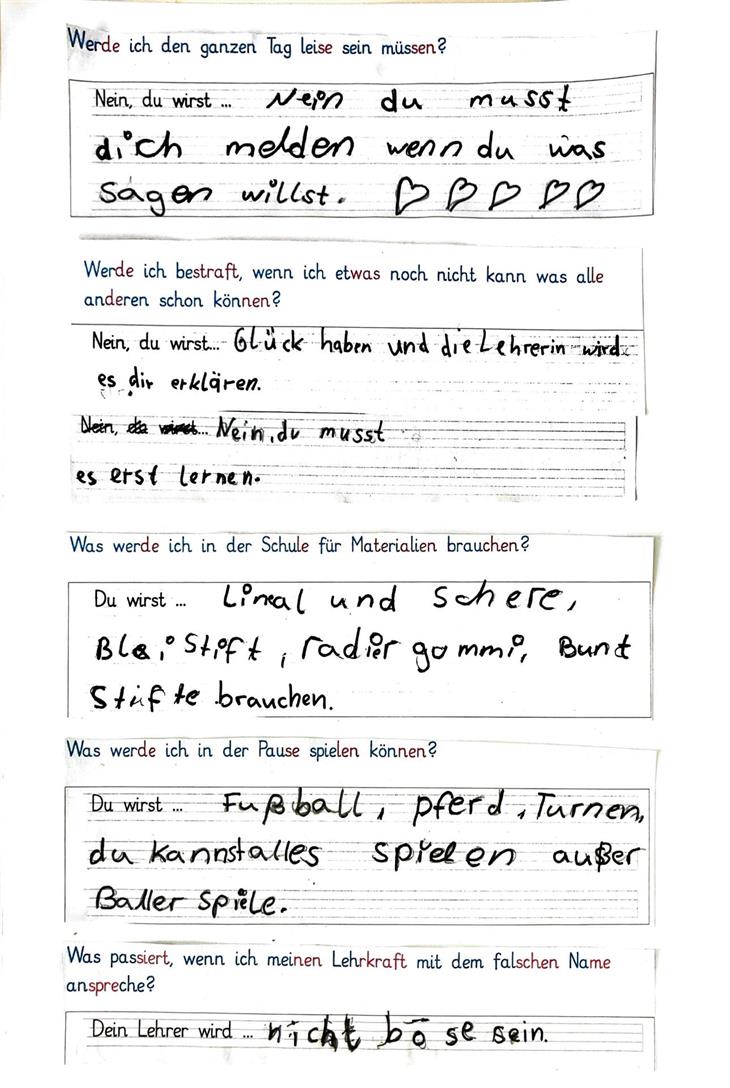 Werde ich den ganzen Tag leise sein müssen?
Nein, du wirst ... Nein du musst
dich melden wenn du was
sagen willst. ♡ ♡ ♡ ♡ ♡
Werde ich bestraft, wenn ich etwas noch nicht kann was alle
anderen schon können?
Nein, du wirst... Glück haben und die Lehrerin wird
es dir erklären.
Nein, du wirst... Nein, du musst
es erst lernen.
Was werde ich in der Schule für Materialien brauchen?
Du wirst ... Lineal und Schere,
Blei Stift, radier gommi, Bunt
Stifte brauchen.
Was werde ich in der Pause spielen können?
Du wirst ... Fußball, pferd, Turnen,
du kannst alles spielen außer
Baller spiele.
Was passiert, wenn ich meinen Lehrkraft mit dem falschen Name
anspreche?
Dein Lehrer wird ... nicht bö se sein.